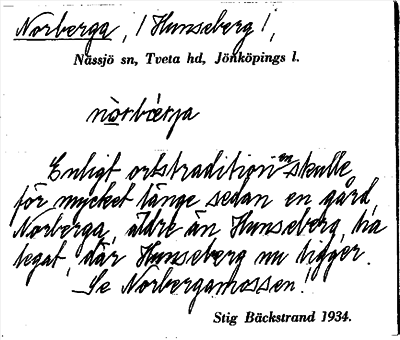 Norberga, (Hunseberg),
Nässjö sn, Tveta hd, Jönköpings l.
nòrbærja
Enligt ortstraditionen skulle
för mycket länge sedan en gård
Norberga, äldre än Hunseberg, ha
legat, där Hunseberg nu ligger.
Se Norbergamossen!
Stig Bäckstrand 1934.